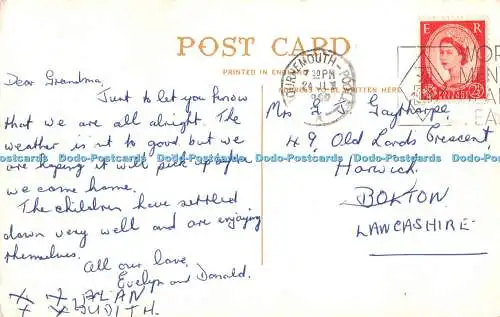 POST CARD
PRINTED IN ENGLAND
ADDRESS TO BE WRITTEN HERE
E R
POSTAGE
2½D
BOURNEMOUTH-POOLE
WOR
Dear Grandma,
Just to let you know
that we are all alright. The
weather is n t to good but we
are hoping it will pick up by
we come home.
The children have settled
down very well and are enjoying
themselves.
All our love,
Evelyn and Donald.
X X ALAN
X X JUDITH.
Mrs Gaythorpe,
49, Old Lords Crescent,
Horwich.
BOLTON
LANCASHIRE
Dodo-Postcards Dodo-Postcards Dodo-Postcards Dodo-Postcards Dodo-Postcards Dodo-Postcards Dodo-Postcards